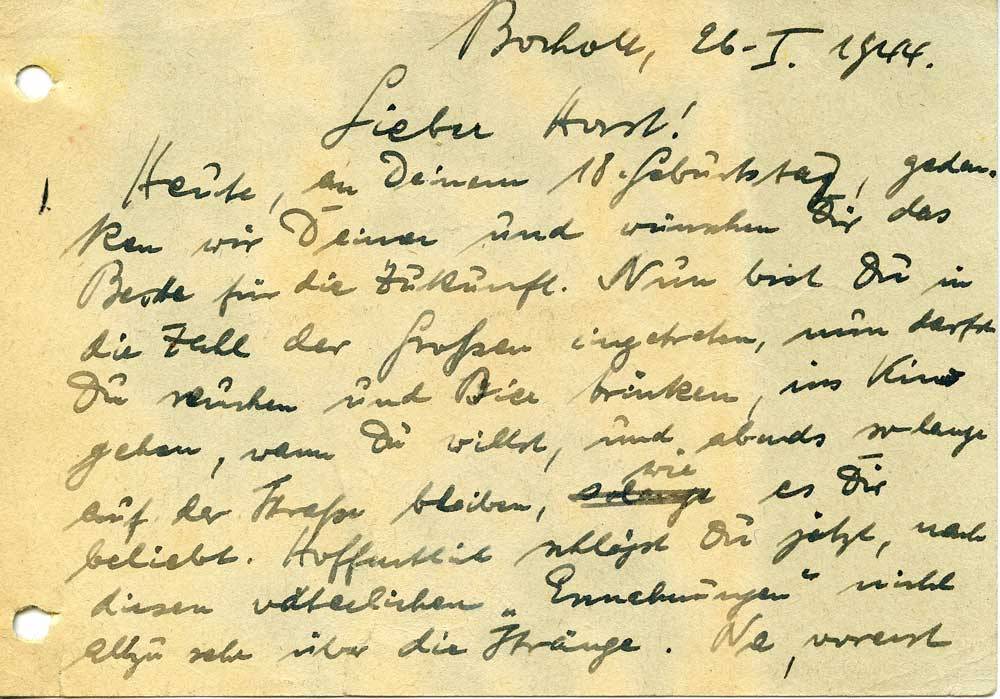 Bocholt, 26-I. 1944.
Lieber Horst!
Heute, an Deinem 18. Geburtstag, geden-
ken wir Deiner und wünschen Dir das
Beste für die Zukunft. Nun bist Du in
die Zahl der Großen eingetreten, nun darfst
Du rauchen und Bier trinken, ins Kino
gehen, wann Du willst, und abends so lange
auf der Straße bleiben, solange wie es Dir
beliebt. Hoffentlich schlägst Du jetzt, nach
diesen väterlichen „Ermahnungen“ nicht
allzu sehr über die Stränge. Na, vorerst